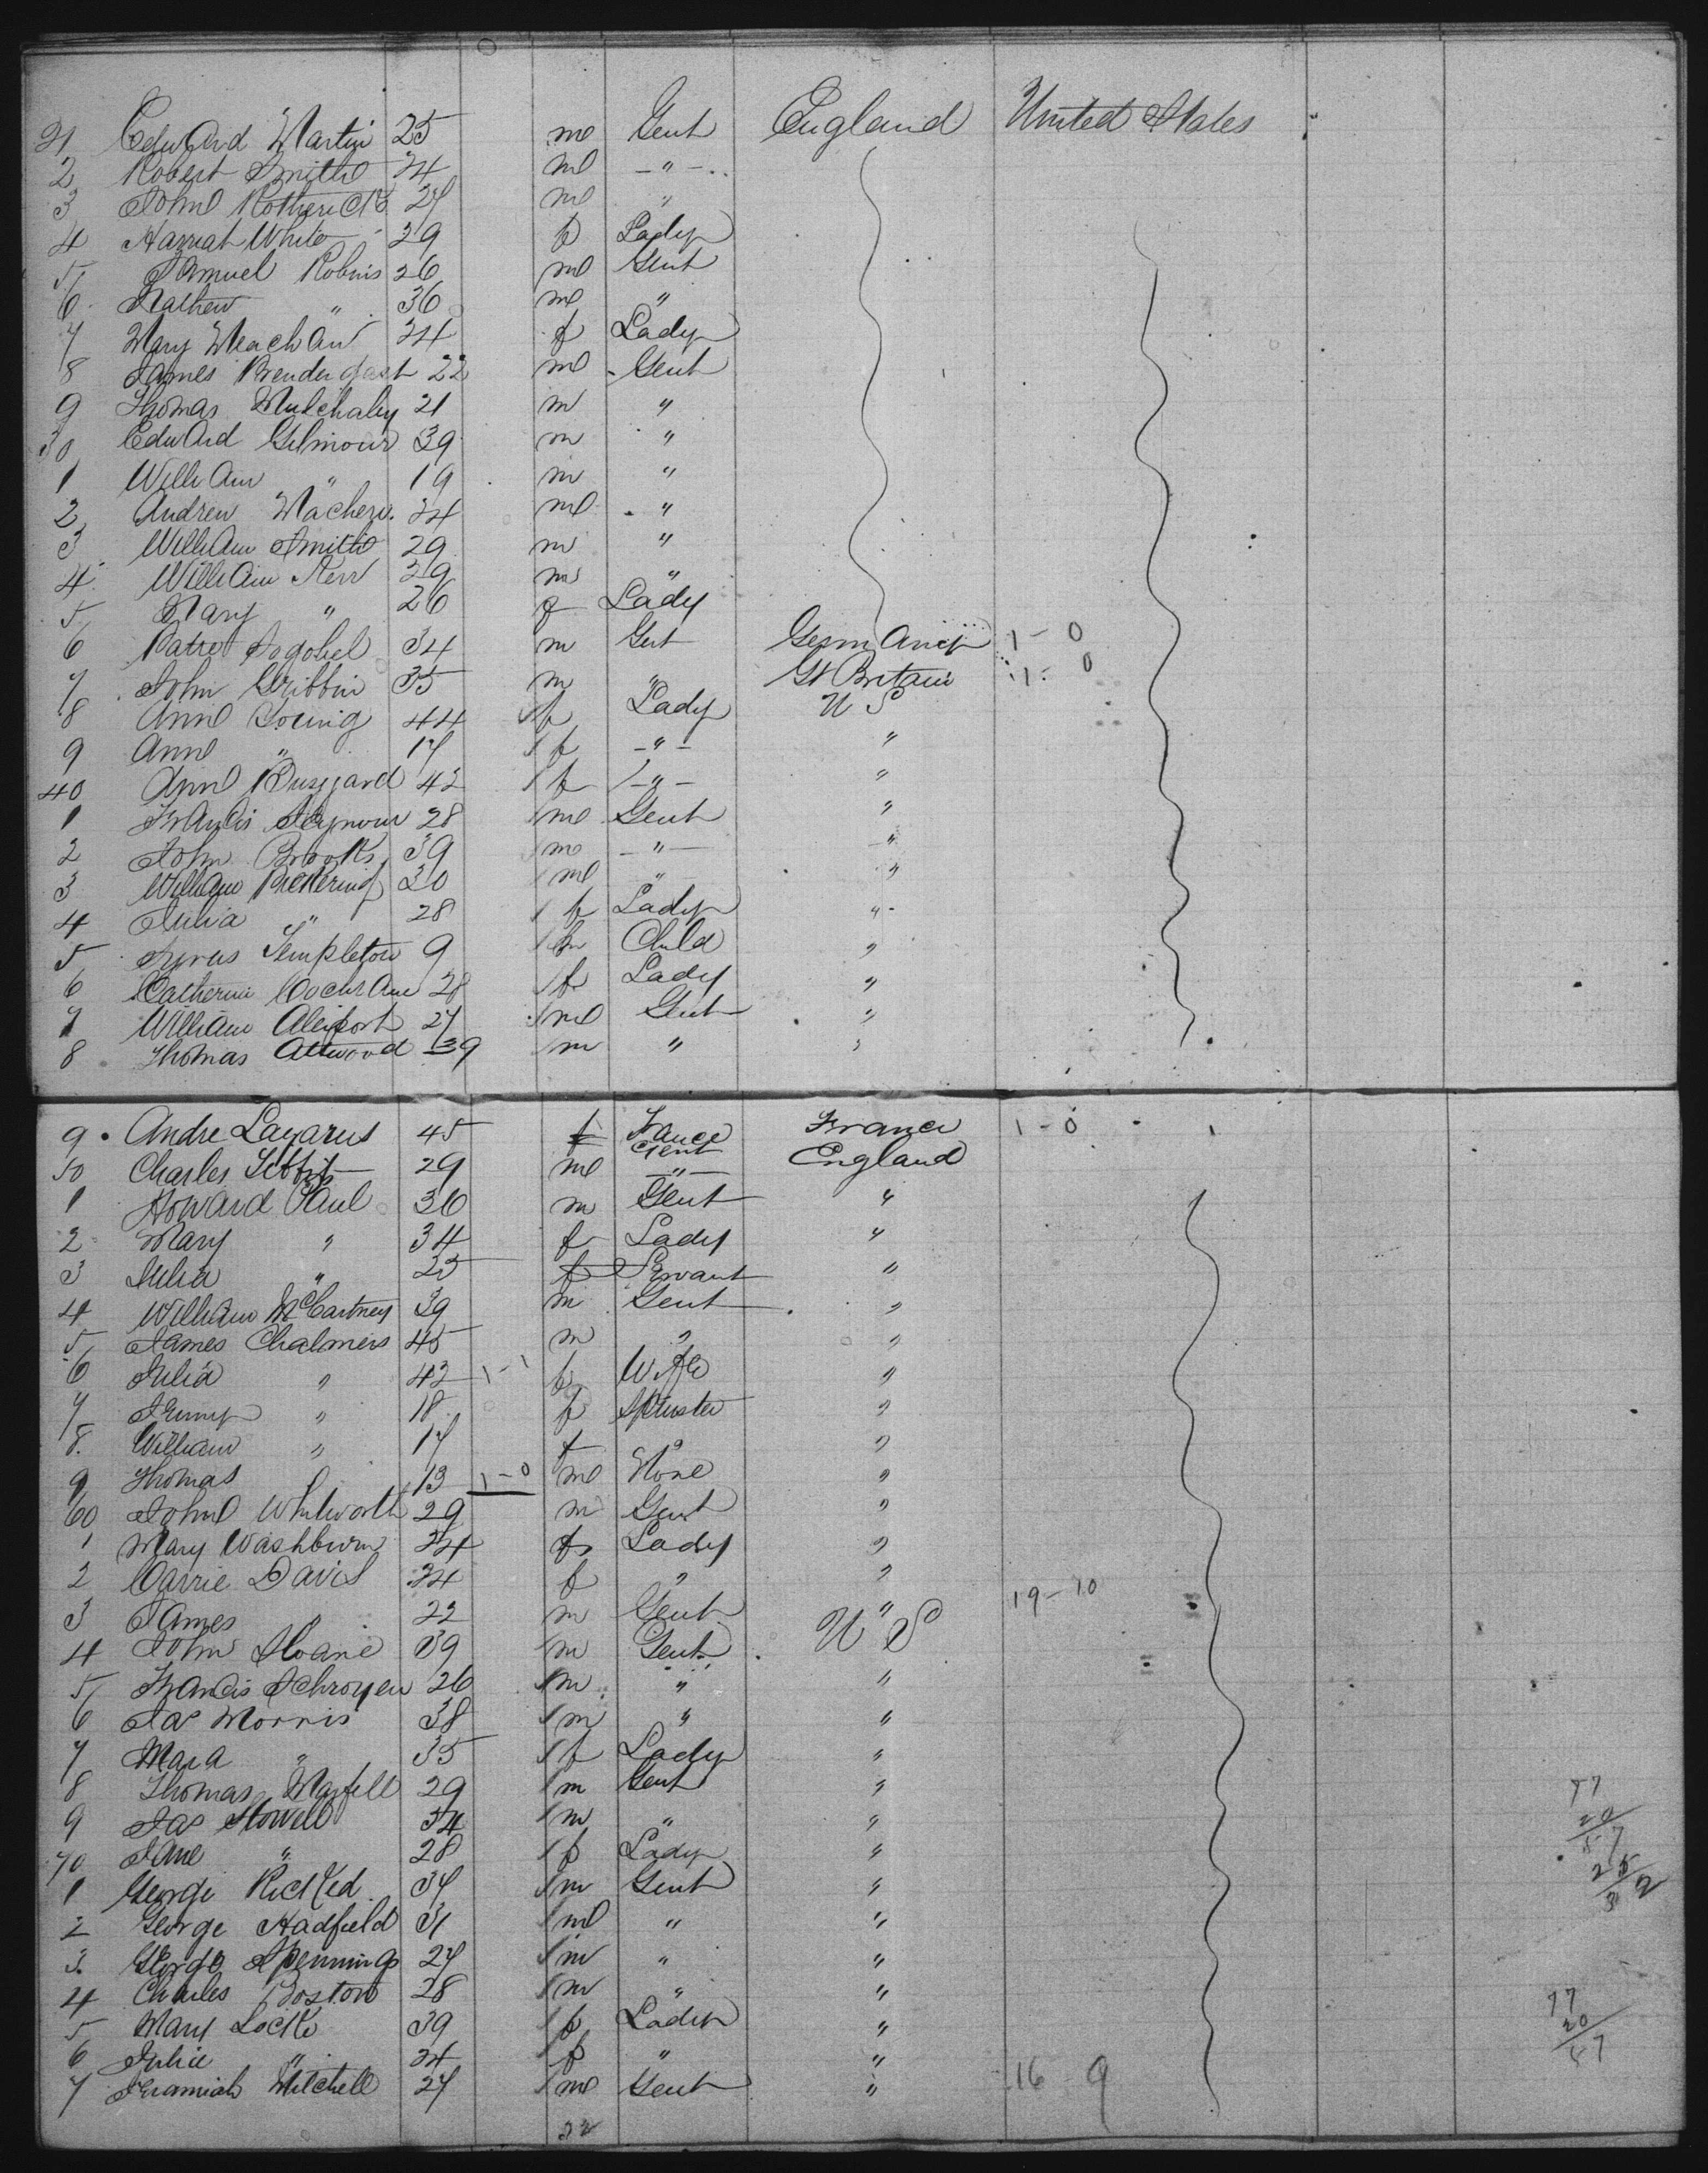 21 Edward Martin 25 m Gent England United States
2 Robert Smith 24 m — " —
3 John Rotherick 27 m "
4 Harriat White 29 f Lady
5 Samuel Robins 26 m Gent
6 Mathew " 36 m "
7 Mary Meacham 24 f Lady
8 James Prendergast 22 m Gent
9 Thomas Mulchahy 21 m "
30 Edward Gilmour 39 m "
1 William " 19 m "
2 Andrew 24 m "
3 William Smith 29 m "
4 William Kerr 39 m "
5 Mary " 26 f Lady
6 34 m Gent Germany 1 - 0
7 John Gribbin 35 m " Gt Britain 1 - 0
8 Ann Young 44 f Lady U S
9 Ann " 17 f — " — "
40 Ann 42 f — " — "
1 Francis Seymour 28 m Gent "
2 John Brooks 39 m — " — "
3 William Pickering 30 m " "
4 Julia " 28 f Lady "
5 Templeton 9 m Child "
6 Catherine Cochran 28 f Lady "
7 William 27 m Gent "
8 Thomas Attwood 39 m " "
9 Andre Lazarus 45 f France Gent France 1 - 0
50 Charles 29 m — " — England
1 Howard Paul 36 m Gent "
2 Mary " 34 f Lady "
3 Julia " 25 f Servant "
4 William McCartney 39 m Gent "
5 James Chalmers 45 m " "
6 Julia " 42 1 - 1 f Wife "
7 Jenny " 18 f Spinster "
8 William " 17 f "
9 Thomas " 13 1 - 0 m None "
60 John Whitworth 29 m Gent "
1 Mary Washburn 24 f Lady "
2 Carrie Davis 24 f " "
3 James " 22 m Gent " 19 - 10
4 John Sloane 39 m Gent U S
5 Francis Schroyen 26 m " "
6 Jas Morris 38 m " "
7 Mara " 35 f Lady "
8 Thomas 29 m Gent "
9 Jas Howell 34 m " "
70 Jane " 28 f Lady "
1 George 34 m Gent "
2 George Hadfield 31 m " "
3 George 27 m " "
4 Charles Boston 28 m " "
5 Mary Locke 39 f Lady "
6 Julia " 24 f " "
7 Jeramiah Mitchell 27 m Gent " 16 - 9
22
77
20
57
25
77
20
57